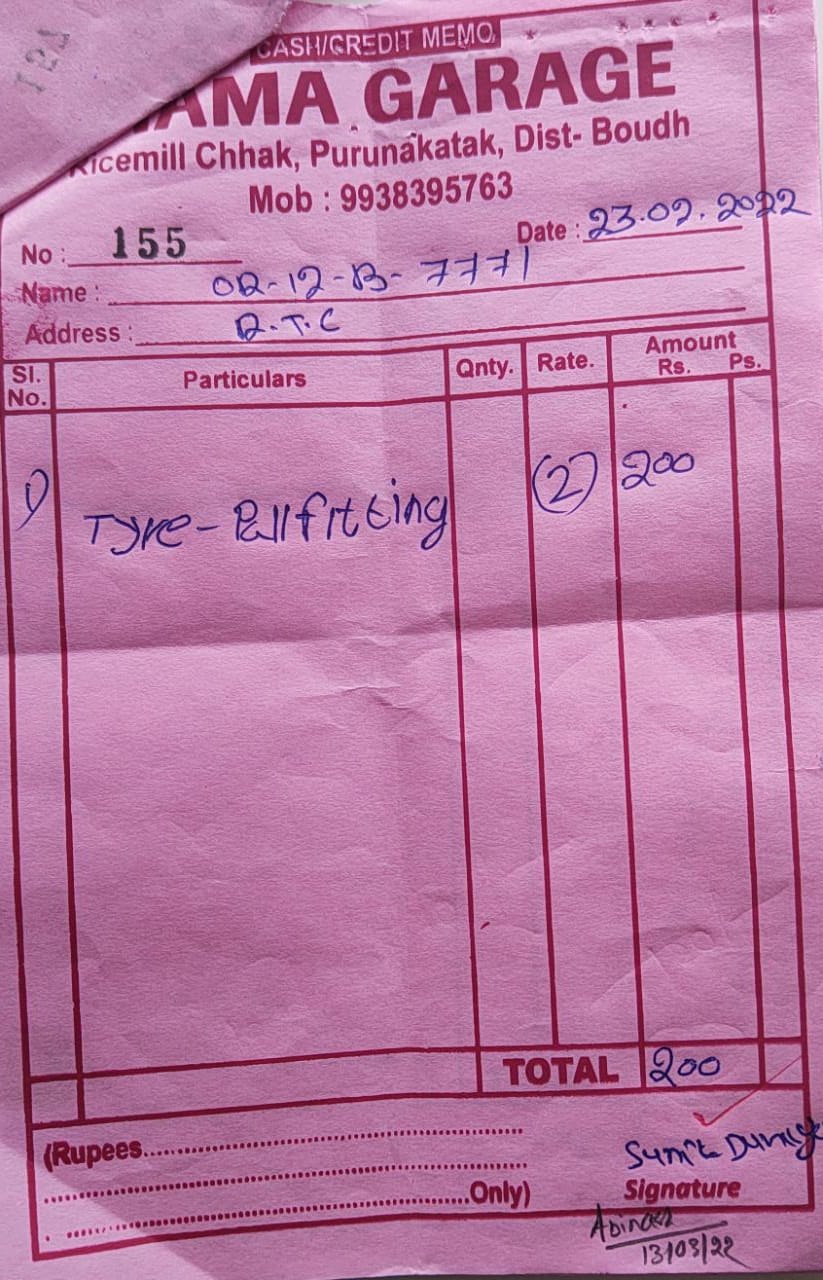 121
CASH/CREDIT MEMO
AMA GARAGE
Ricemill Chhak, Purunakatak, Dist- Boudh
Mob : 9938395763
No : 155 Date : 23.02.2022
Name : OR-12-B-7771
Address : R.T.C
Sl. No. Particulars Qnty. Rate. Amount Rs. Ps.
1) Tyre-Pull fitting (2) 200
TOTAL 200
(Rupees
Only)
Sumit
Signature
13/03/22